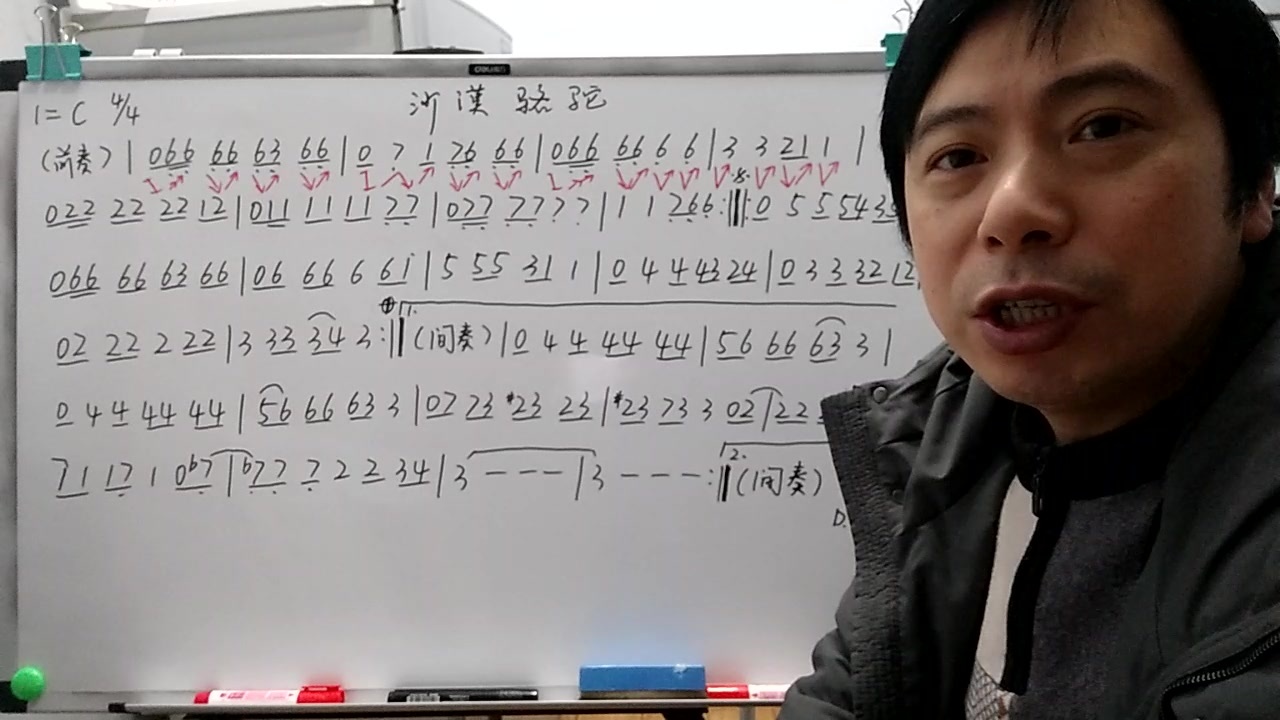 DELI
1=C 4/4 沙漠骆驼
(前奏) | 066 66 63 66 | 0 7 1 76 66 | 066 66 6 6 | 3 3 21 1 |
022 22 22 12 | 011 11 11 77 | 077 77 7 7 | 1 1 266 :‖: 0 5 5 54 35
066 66 63 66 | 06 66 6 61 | 5 55 31 1 | 0 4 4 43 24 | 0 3 3 32 12
02 22 2 22 | 3 33 34 3 :‖ 1. (间奏) | 0 4 4 44 44 | 56 66 63 3 |
0 4 4 44 44 | 56 66 63 3 | 02 23 #23 23 | #23 23 3 02 | 22
71 17 1 0b7 | b77 7 2 2 34 | 3 - - - | 3 - - - :‖ 2. (间奏)
D.